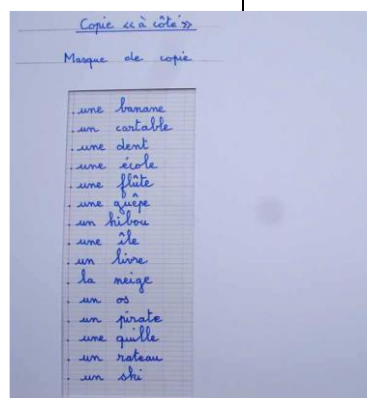 Copie « à côté »
Masque de copie
. une banane
. un cartable
. une dent
. une école
. une flûte
. une guêpe
. un hibou
. une île
. un livre
. la neige
. un os
. un pirate
. une quille
. un rateau
. un ski